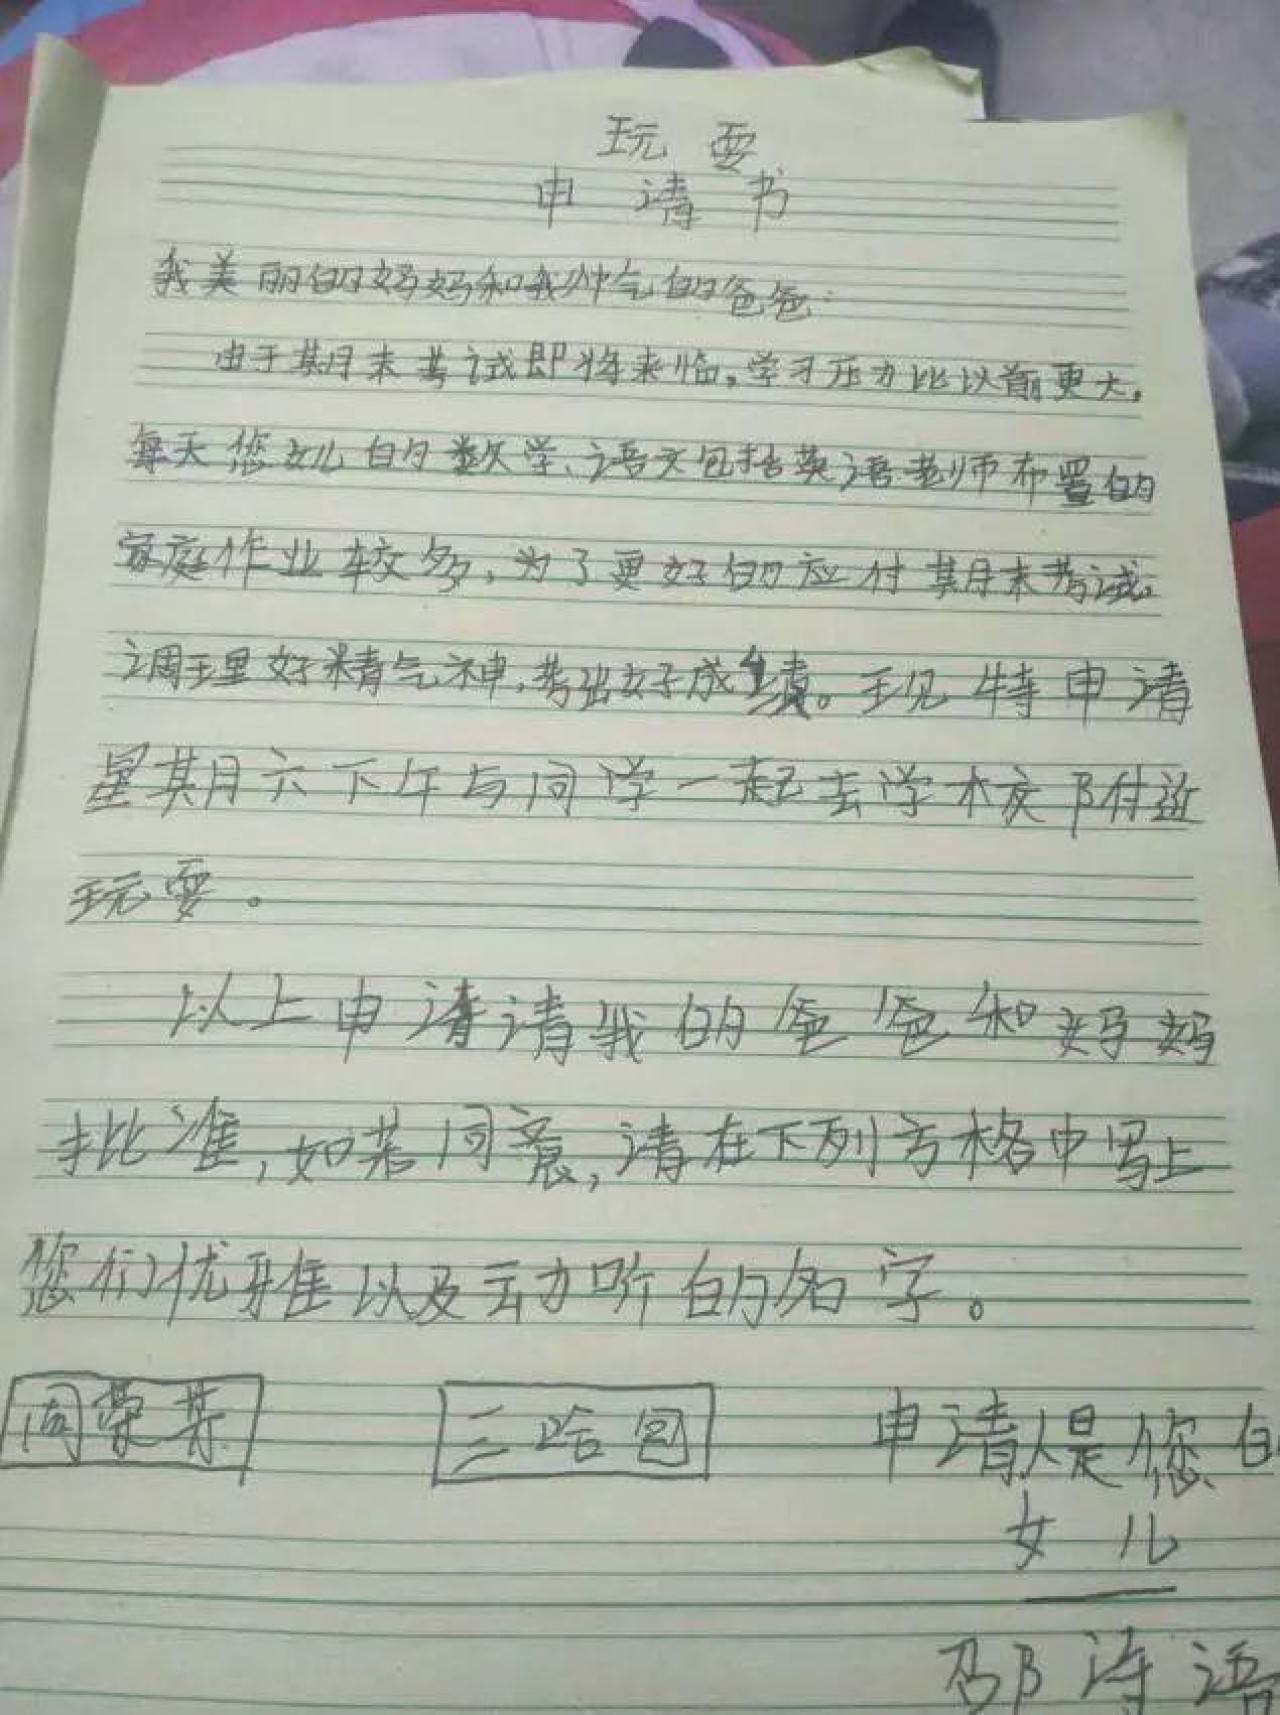 玩耍
申请书
我美丽的妈妈和我帅气的爸爸:
由于期末考试即将来临,学习压力比以前更大,
每天您女儿的数学、语文包括英语老师布置的
家庭作业较多,为了更好的应付期末考试,
调理好精气神,考出好成绩。现特申请
星期六下午与同学一起去学校附近
玩耍。
以上申请请我的爸爸和妈妈
批准,如若同意,请在下列方格中写上
您们优雅以及动听的名字。
周荣 三哈包 申请人是您的
女儿
邵诗语